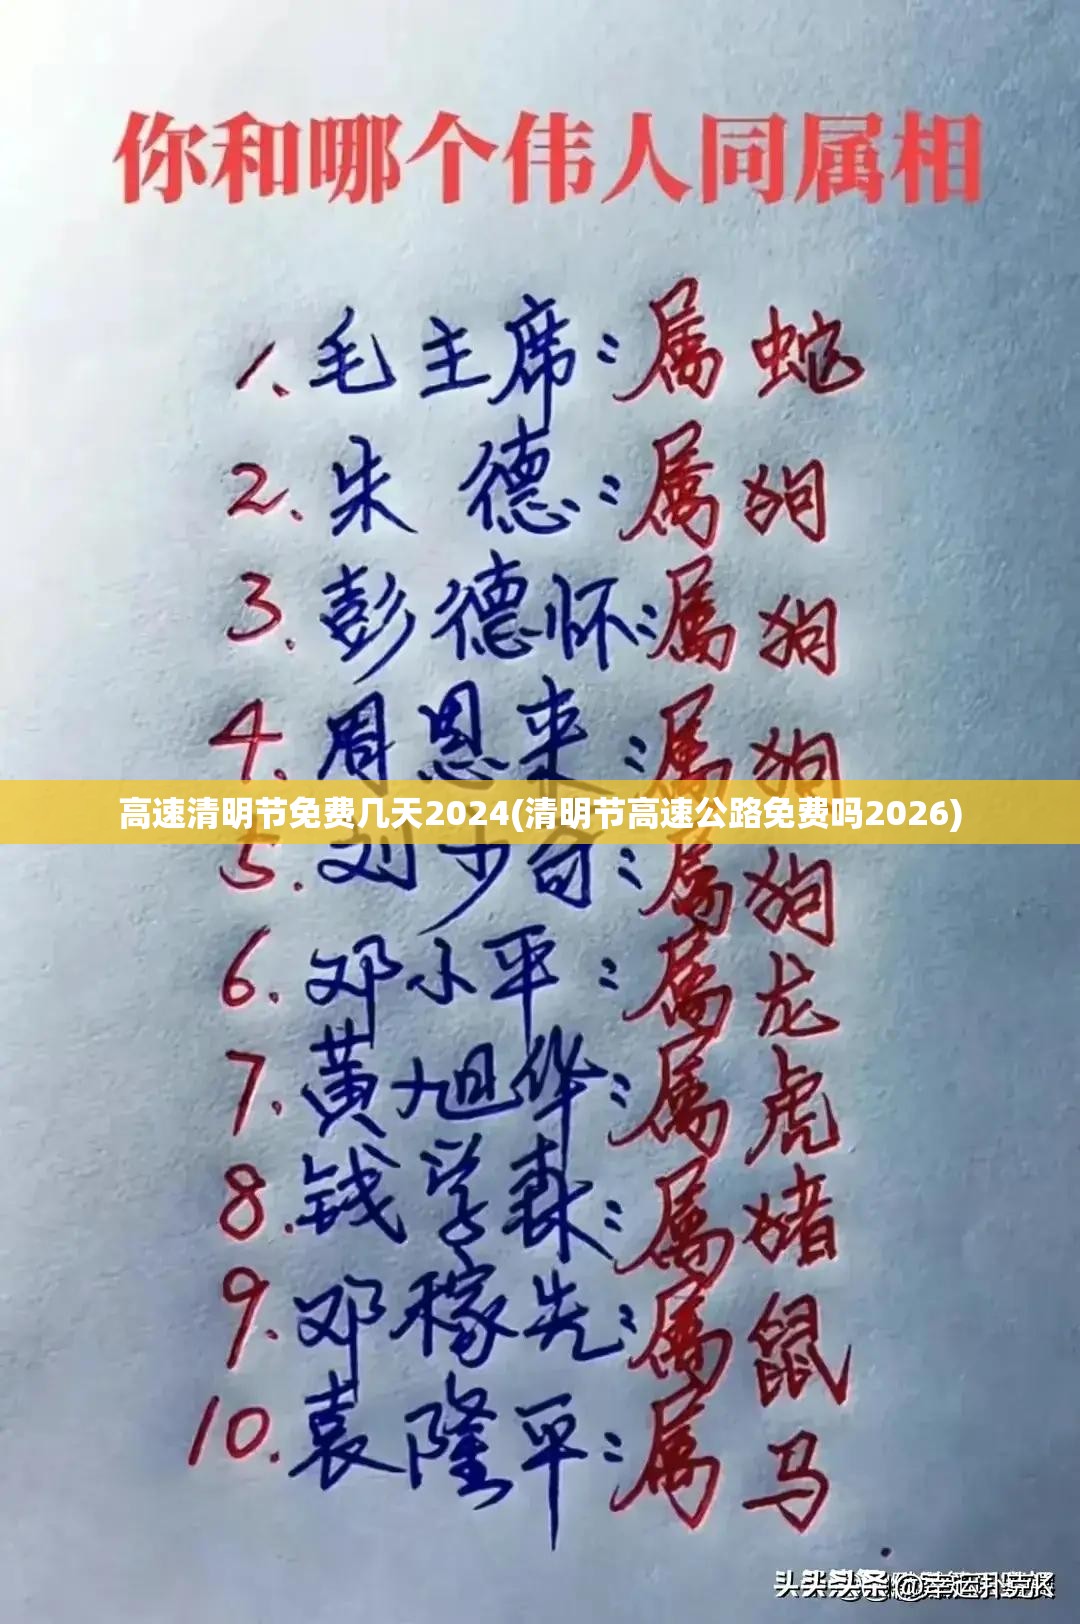 你和哪个伟人同属相
1、毛主席：属蛇
2、朱德：属狗
3、彭德怀：属狗
4、周恩来：属狗
高速清明节免费几天2024(清明节高速公路免费吗2026)
5、刘少奇：属狗
6、邓小平：属龙
7、黄旭华：属虎
8、钱学森：属猪
9、邓稼先：属鼠
10、袁隆平：属马
头条 @幸运扑克派